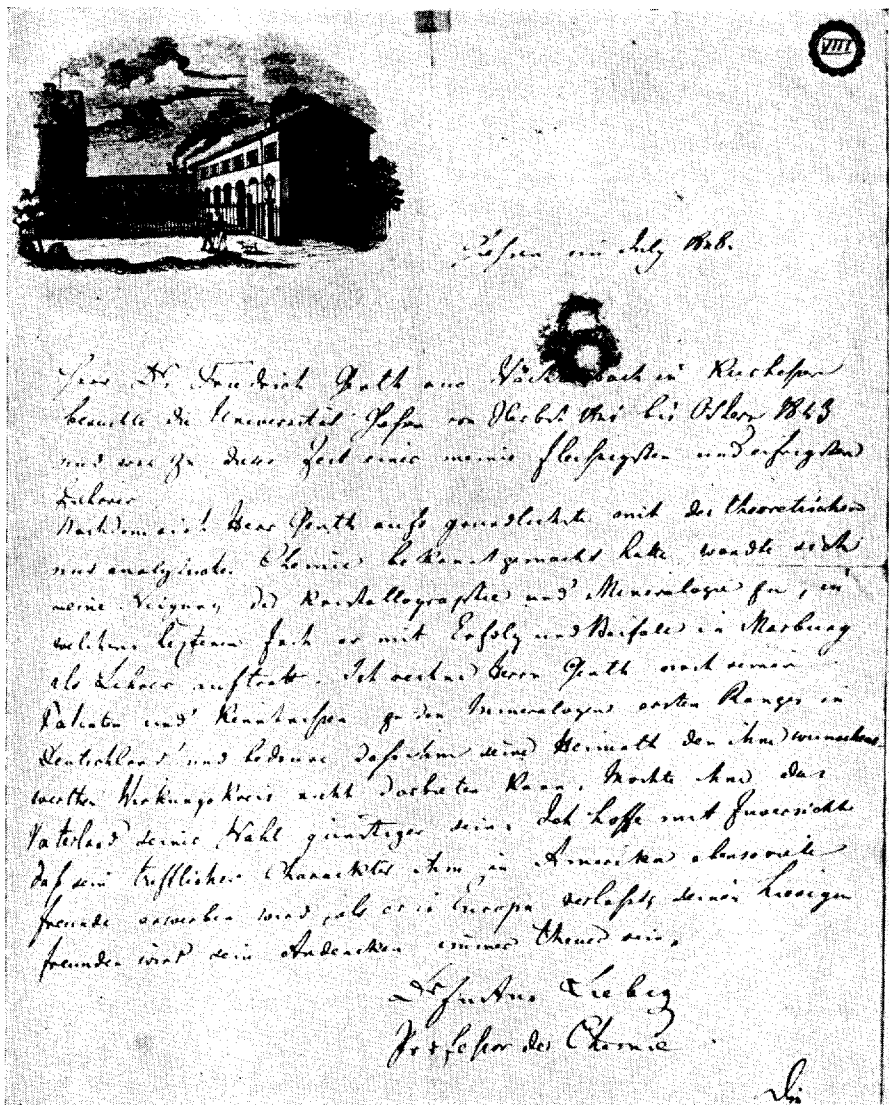 VIII
Gießen im July 1848.
Herr Dr Friedrich Genth aus Wächtersbach in Kurhessen
besuchte die Universität Gießen von Herbst bis Ostern 1843
und war zu dieser Zeit einer meiner fleißigsten und eifrigsten
Zuhörer
Nachdem sich Herr Genth aufs gründlichste mit der theoretischen
und analytischen Chemie bekannt gemacht hatte wandte sich
seine Neigung der Kristallographie und Mineralogie zu, in
welchem letzteren Fach er mit Erfolg und Beifall in Marburg
als Lehrer auftrat. Ich rechne Herrn Genth nach seinen
Talenten und Kenntnißen zu den Mineralogen ersten Ranges in
Deutschland und bedaure daß ihm seine Heimath den ihm wünschens
werthen Wirkungskreis nicht darbieten kann. Möchte ihm das
Vaterland seiner Wahl günstiger sein. Ich hoffe mit Zuversicht
daß sein trefflicher Charackter ihm in Amerika ebensoviele
freunde erwerben wird, als er in Europa verläßt, seinen hiesigen
freunden wird sein Andencken immer theuer sein.
Dr Justus Liebig
Professor der Chemie
Die